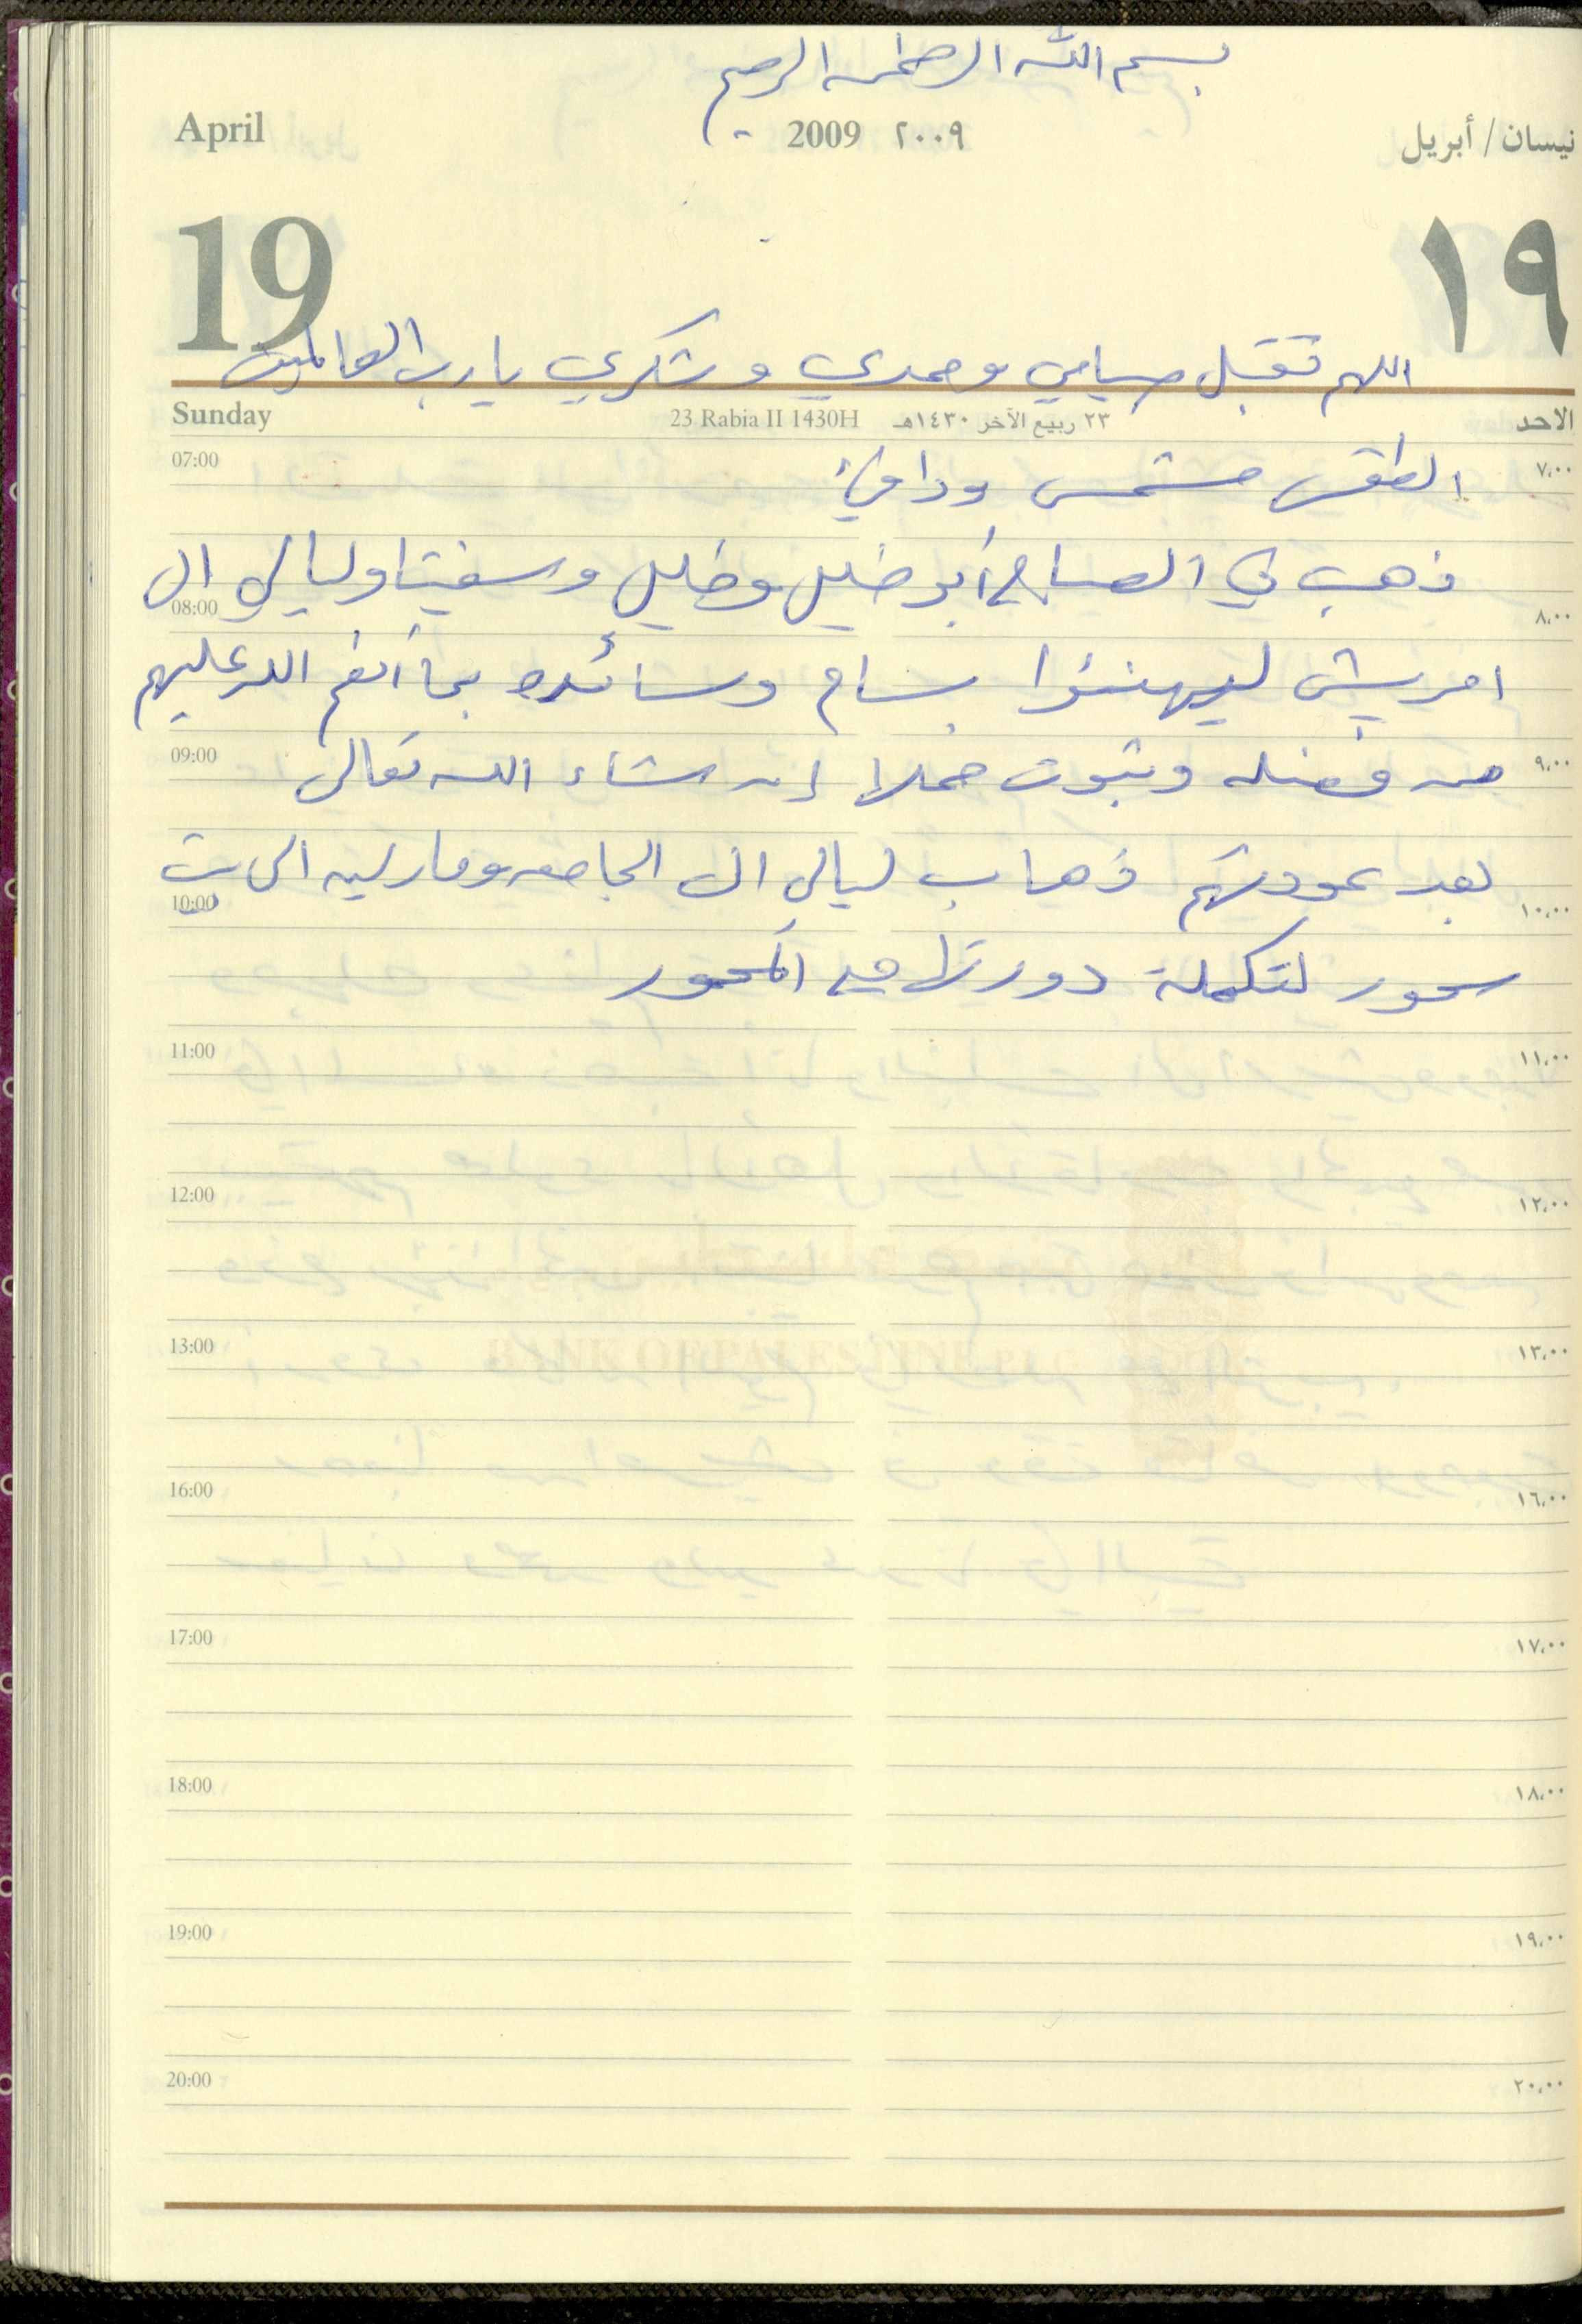 بسم الله الرحمن الرحيم
April 2009 ٢٠٠٩ نيسان / أبريل
19 ١٩
اللهم تقبل صيامي وحمدي وشكري يا رب العالمين
Sunday 23 Rabia II 1430H ٢٣ ربيع الآخر ١٤٣٠هـ الاحد
07:00 ٧،٠٠
الطقس مشمس ودافئ
ذهب في الصباح أبو خليل وخليل وسفيتا وليالي الى
08:00 ٨،٠٠
امريش ليهنئوا بسام وسائده بما أنعم الله عليهم
09:00 ٩،٠٠
من فضله وثبوت حملها إن شاء الله تعالى
بعد عودتهم ذهاب ليالي الى الجامعه ومارلين الى بيت
10:00 ١٠،٠٠
سحور لتكملة دورتها في المحور
11:00 ١١،٠٠
12:00 ١٢،٠٠
BANK OF PALESTINE P.L.C
13:00 ١٣،٠٠
16:00 ١٦،٠٠
17:00 ١٧،٠٠
18:00 ١٨،٠٠
19:00 ١٩،٠٠
20:00 ٢٠،٠٠